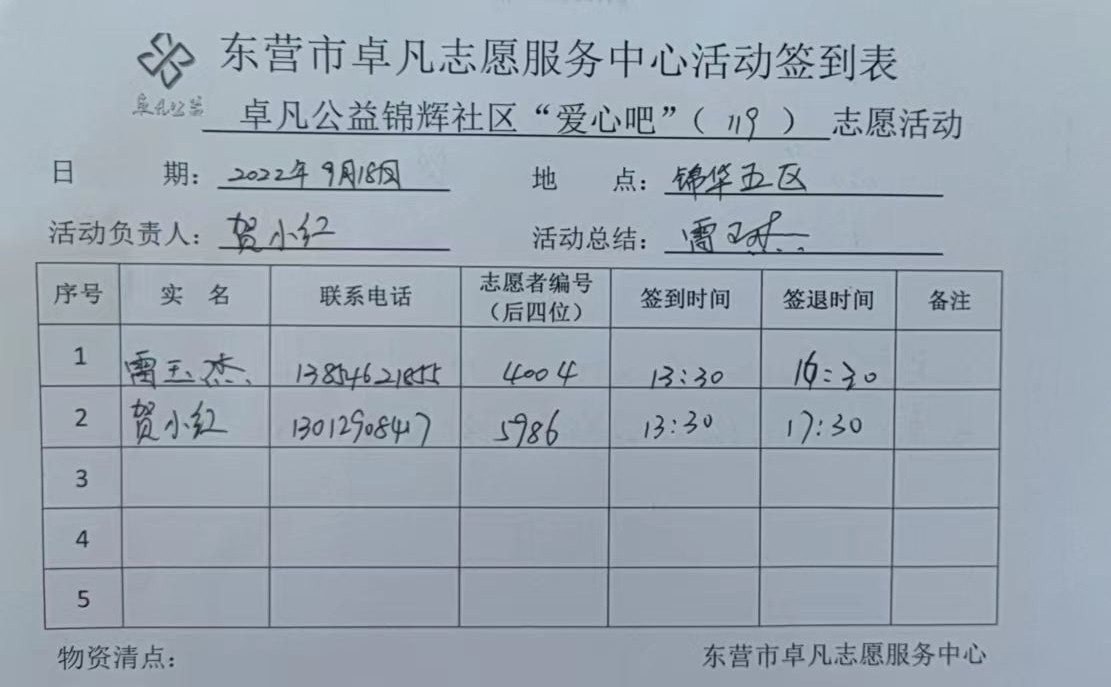 东营市卓凡志愿服务中心活动签到表
卓凡公益
卓凡公益锦辉社区“爱心吧”( 119 ) 志愿活动
日 期: 2022年9月18日 地 点: 锦华五区
活动负责人: 贺小红 活动总结: 雷玉杰
序号 实 名 联系电话 志愿者编号(后四位) 签到时间 签退时间 备注
1 雷玉杰 13854621855 4004 13:30 16:30
2 贺小红 13012908417 5986 13:30 17:30
3
4
5
物资清点: 东营市卓凡志愿服务中心